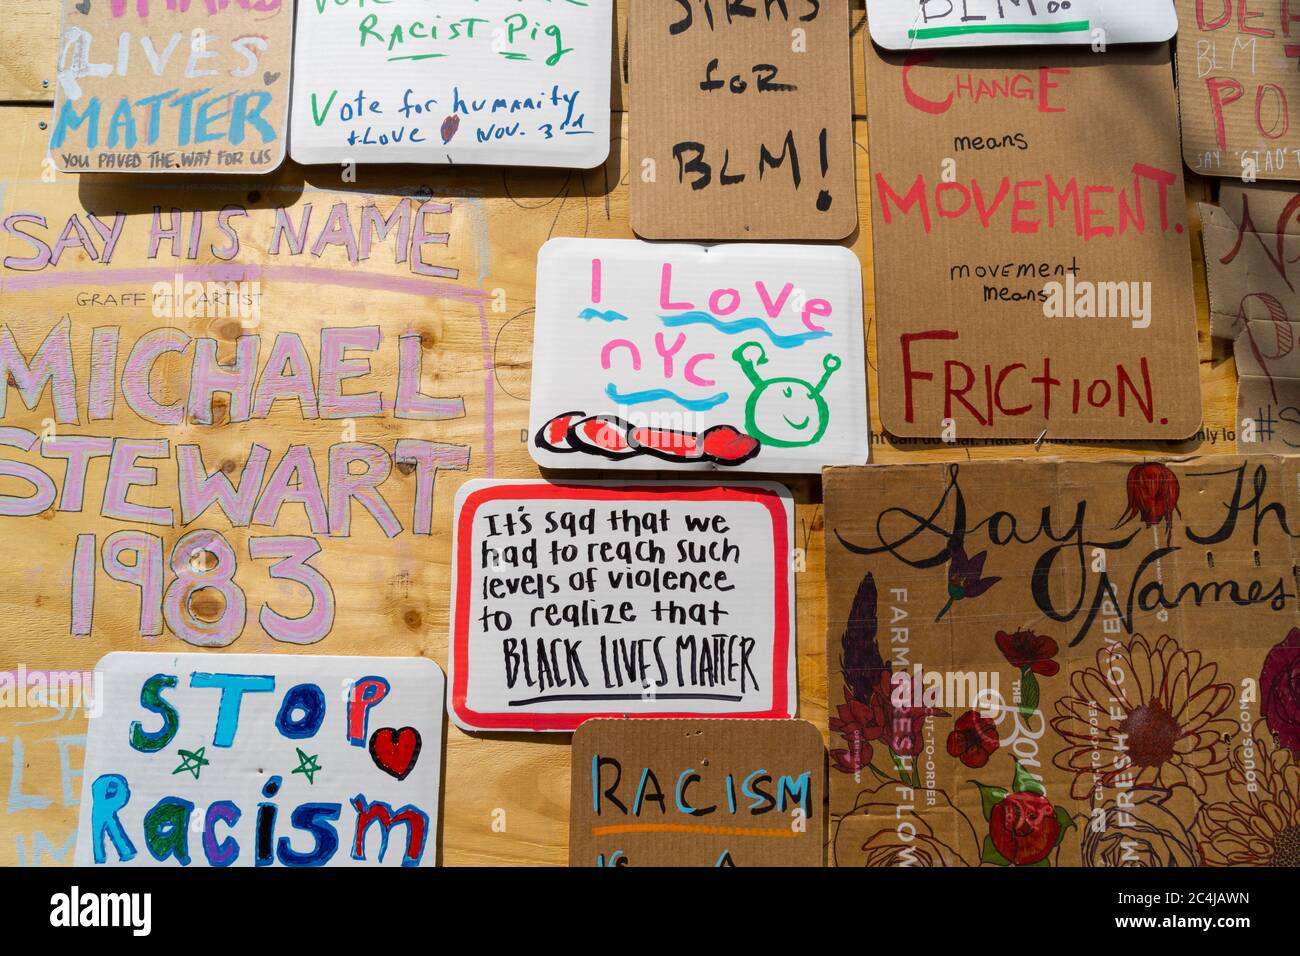 LIVES
MATTER
YOU PAVED THE WAY FOR US
RACIST PIG
Vote for humanity
+Love Nov. 3rd
for
BLM!
BLM!
CHANGE
means
MOVEMENT.
movement
means
FRICTION.
BLM
PO
SAY
SAY HIS NAME
GRAFFITI ARTIST
MICHAEL
STEWART
1983
I Love
nYc
It's sad that we
had to reach such
levels of violence
to realize that
BLACK LIVES MATTER
Say Th
Names
FARM FRESH FLOW
CUT-TO-ORDER
THE
FARM FRESH FLOWER
CUT-TO-ORDER
BOUQS.COM
STOP
Racism
RACISM
alamy
Image ID: 2C4JAWN
www.alamy.com